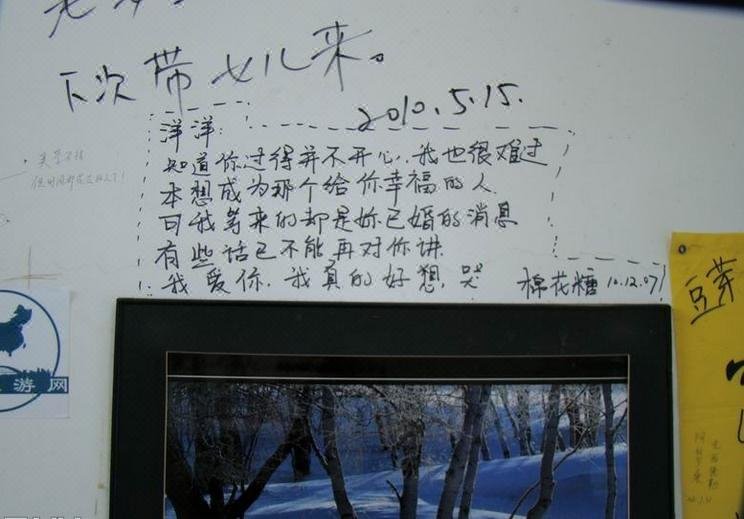 下次带女儿来。
2010.5.15.
洋洋:
知道你过得并不开心,我也很难过
本想成为那个给你幸福的人
可我等来的却是妳已婚的消息
有些话已不能再对你讲
我爱你.我真的好想哭
棉花糖 10.12.07
游网
豆芽